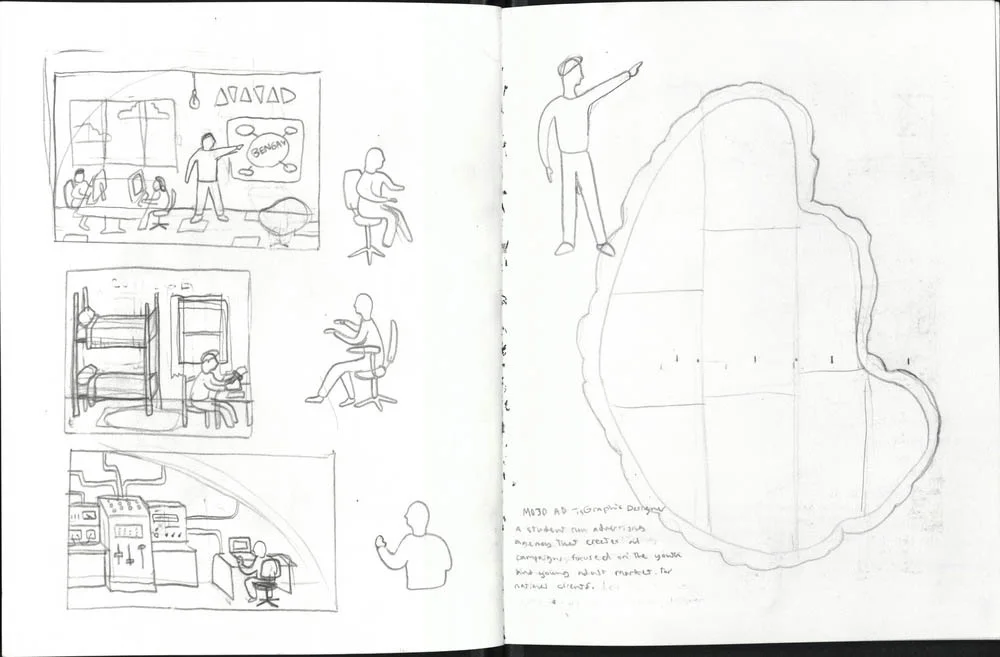 BENGAY
MOJO AD → Graphic Designer
A student run advertising
agency that creates ad
campaigns focused on the youth
and young adult market for
national clients.